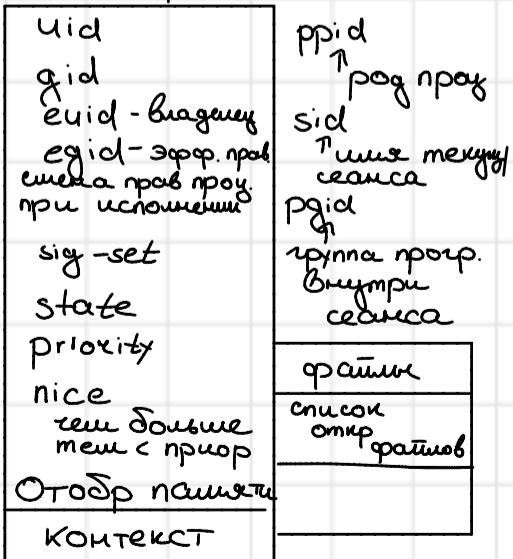 uid
gid
euid - владелец
egid - эфф. прав
смена прав проц.
при исполнении
sig-set
state
priority
nice
чем больше
тем < приор
Отобр памяти
контекст
ppid
↑
род проц
sid
↑ имя текущ
сеанса
pgid
↑
группа прогр.
внутри
сеанса
файлы
список
откр
файлов